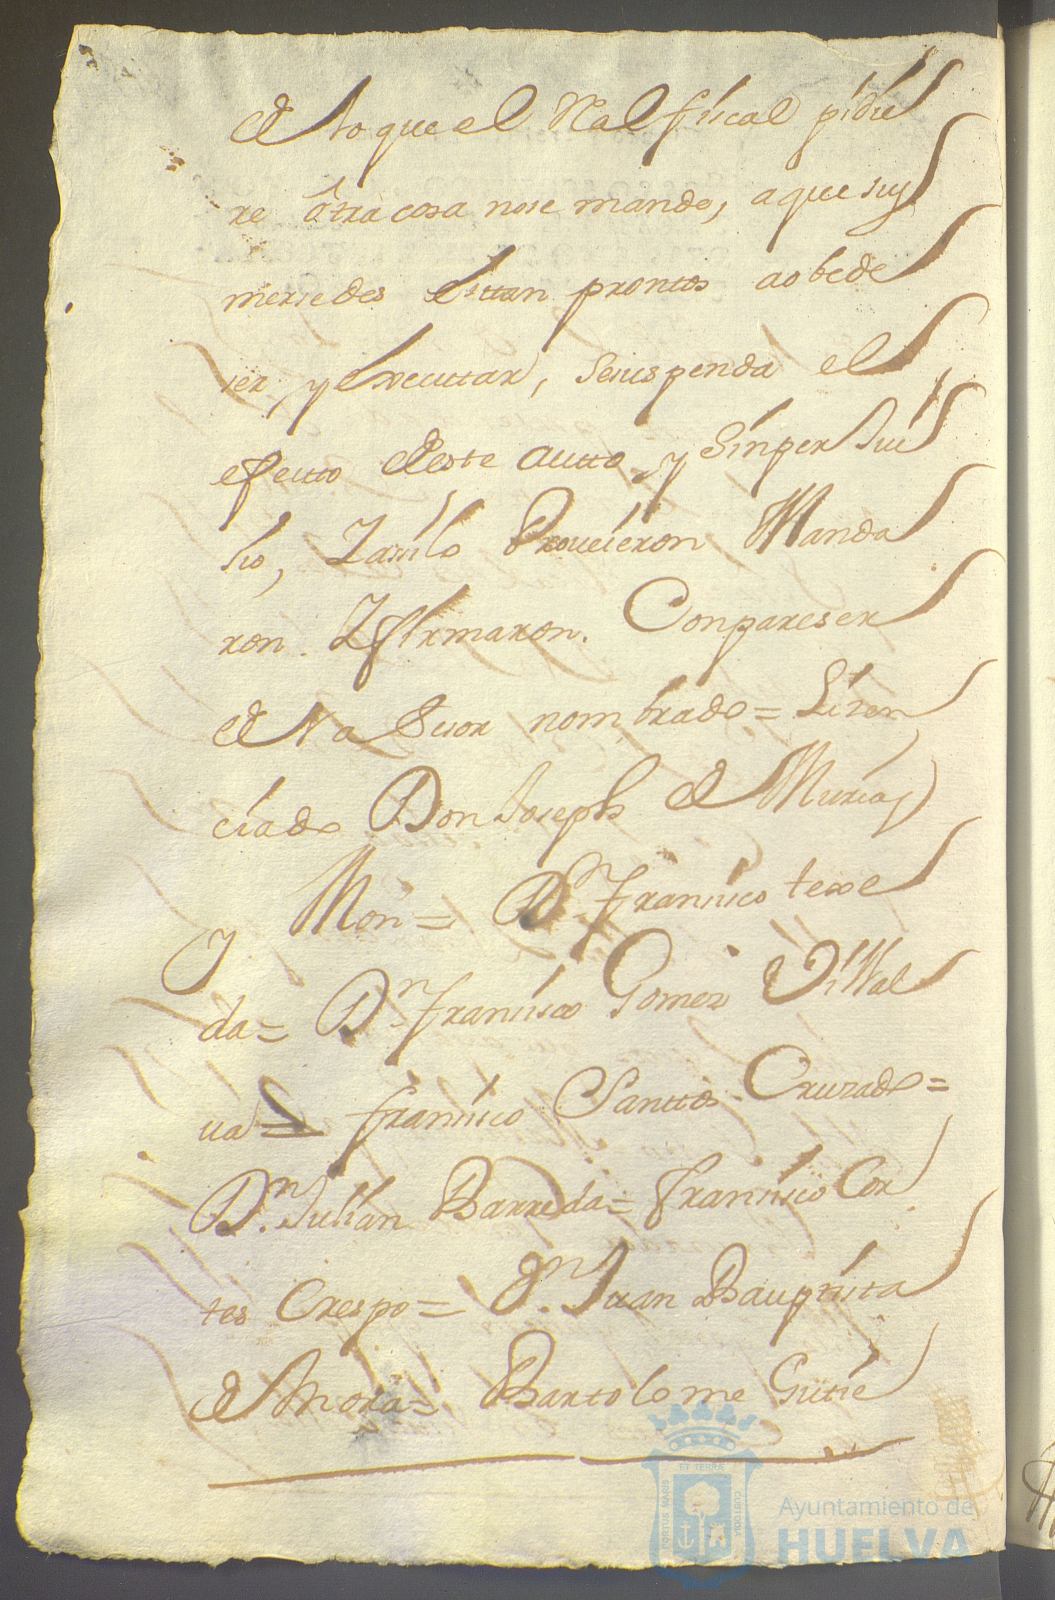 de lo que el Real fiscal pidie
re ôtra cosa nose mande, a que sus
mersedes estan prontos aobede
ser, y executtar, sesuspenda el
efectto deeste autto, y Sinper Jui
sio, Yasilo Proveieron Manda
ron. Yfirmaron. Conpareser
del Asesor nombrado = Lizen
ciado Don Joseph de Murias
y Mon = Dn. Fransisco texe
da = Dn. Fransisco Gomez de Villal
va = fransisco Santtos Cruzado =
Dn. Julian Barreda = fransisco Cor
tes Crespo = Dn. Juan Bauptista
de Mora = Bartolome Gutie
ET TERRÆ
PORTUS MARIS
CUSTODIA
Ayuntamiento de
HUELVA